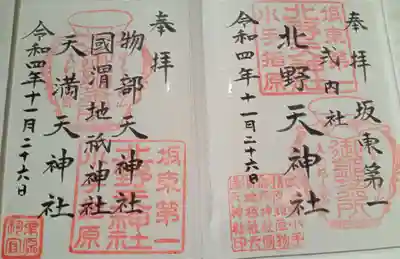 奉拝
坂東第一
式内社
北野天神社
令和四年十一月二十六日
奉拝
物部天神社
國渭地祇神社
天満天神社
令和四年十一月二十六日
坂東第一